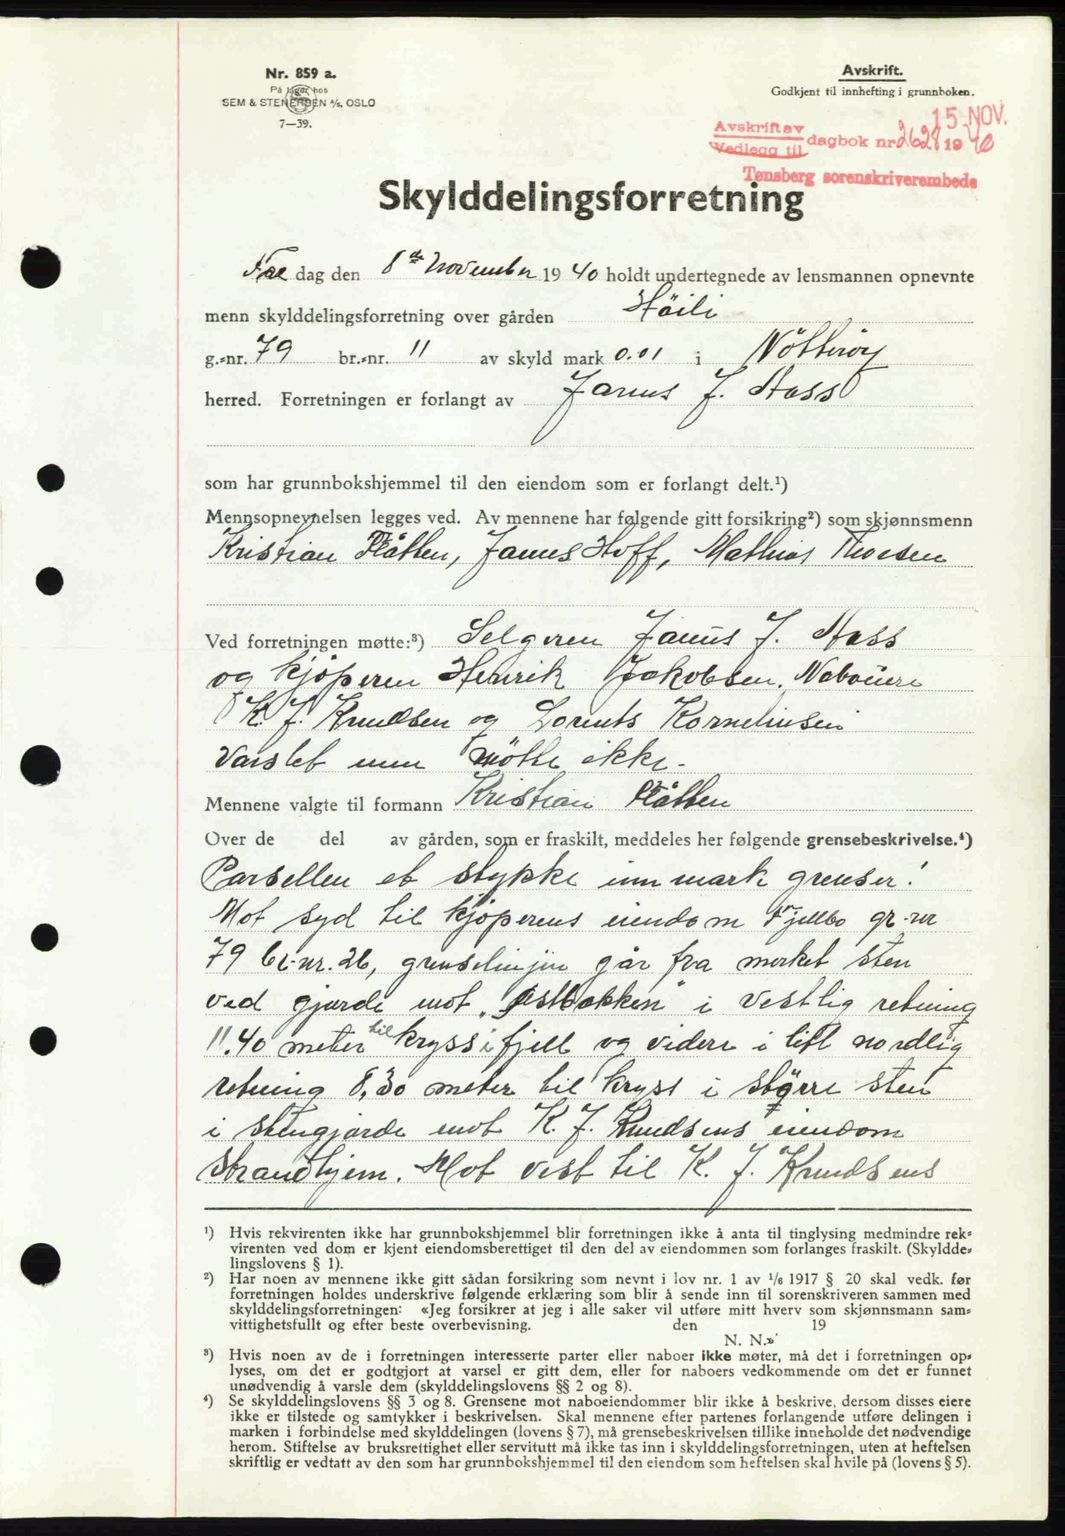 Nr. 859 a.
På lager hos
SEM & STENERSEN A/S, OSLO
7—39.
Avskrift.
Godkjent til innhefting i grunnboken.
15 NOV.
Avskrift av
Vedlegg til dagbok nr 2628 19 40
Tønsberg sorenskriverembede
Skylddelingsforretning
Fre dag den 8de November 19 40 holdt undertegnede av lensmannen opnevnte
menn skylddelingsforretning over gården Höili
g.-nr. 79 br.-nr. 11 av skyld mark 0.01 i Nötteröy
herred. Forretningen er forlangt av Janus J. Aass
som har grunnbokshjemmel til den eiendom som er forlangt delt.¹)
Mennsopnevnelsen legges ved. Av mennene har følgende gitt forsikring²) som skjønnsmenn
Kristian Flåtten, Janus Hoff, Mathias Thorsen
Ved forretningen møtte:³) Selgeren Janus J. Aass
og kjöperen Henrik Jakobsen. Naboene
K. J. Knudsen og Lorents Korneliusen
varslet men mötte ikke.
Mennene valgte til formann Kristian Flåtten
Over de del av gården, som er fraskilt, meddeles her følgende grensebeskrivelse.⁴)
Parsellen et stykke innmark grenser:
Mot syd til kjöperens eiendom Fjellbo gr-nr
79 br-nr. 26, grenselinjen går fra merket sten
ved gjærde mot "Östbakken" i vestlig retning
11.40 meter til kryss i fjell og videre i litt nordlig
retning 8,30 meter til kryss i större sten
i stengjærde mot K. J. Knudsens eiendom
Strandhjem. Mot vest til K. J. Knudsens
¹) Hvis rekvirenten ikke har grunnbokshjemmel blir forretningen ikke å anta til tinglysing medmindre rek-
virenten ved dom er kjent eiendomsberettiget til den del av eiendommen som forlanges fraskilt. (Skyldde-
lingslovens § 1).
²) Har noen av mennene ikke gitt sådan forsikring som nevnt i lov nr. 1 av 1/6 1917 § 20 skal vedk. før
forretningen holdes underskrive følgende erklæring som blir å sende inn til sorenskriveren sammen med
skylddelingsforretningen: «Jeg forsikrer at jeg i alle saker vil utføre mitt hverv som skjønnsmann sam-
vittighetsfullt og efter beste overbevisning. den 19
N. N.»
³) Hvis noen av de i forretningen interesserte parter eller naboer ikke møter, må det i forretningen op-
lyses, om det er godtgjort at varsel er gitt dem, eller for naboers vedkommende om det er funnet
unødvendig å varsle dem (skylddelingslovens §§ 2 og 8).
⁴) Se skylddelingslovens §§ 3 og 8. Grensene mot naboeiendommer blir ikke å beskrive, dersom disses eiere
ikke er tilstede og samtykker i beskrivelsen. Skal mennene efter partenes forlangende utføre delingen i
marken i forbindelse med skylddelingen (lovens § 7), må grensebeskrivelsen tillike inneholde det nødvendige
herom. Stiftelse av bruksrettighet eller servitutt må ikke tas inn i skylddelingsforretningen, uten at heftelsen
skriftlig er vedtatt av den som har grunnbokshjemmel til den eiendom som heftelsen skal hvile på (lovens § 5).